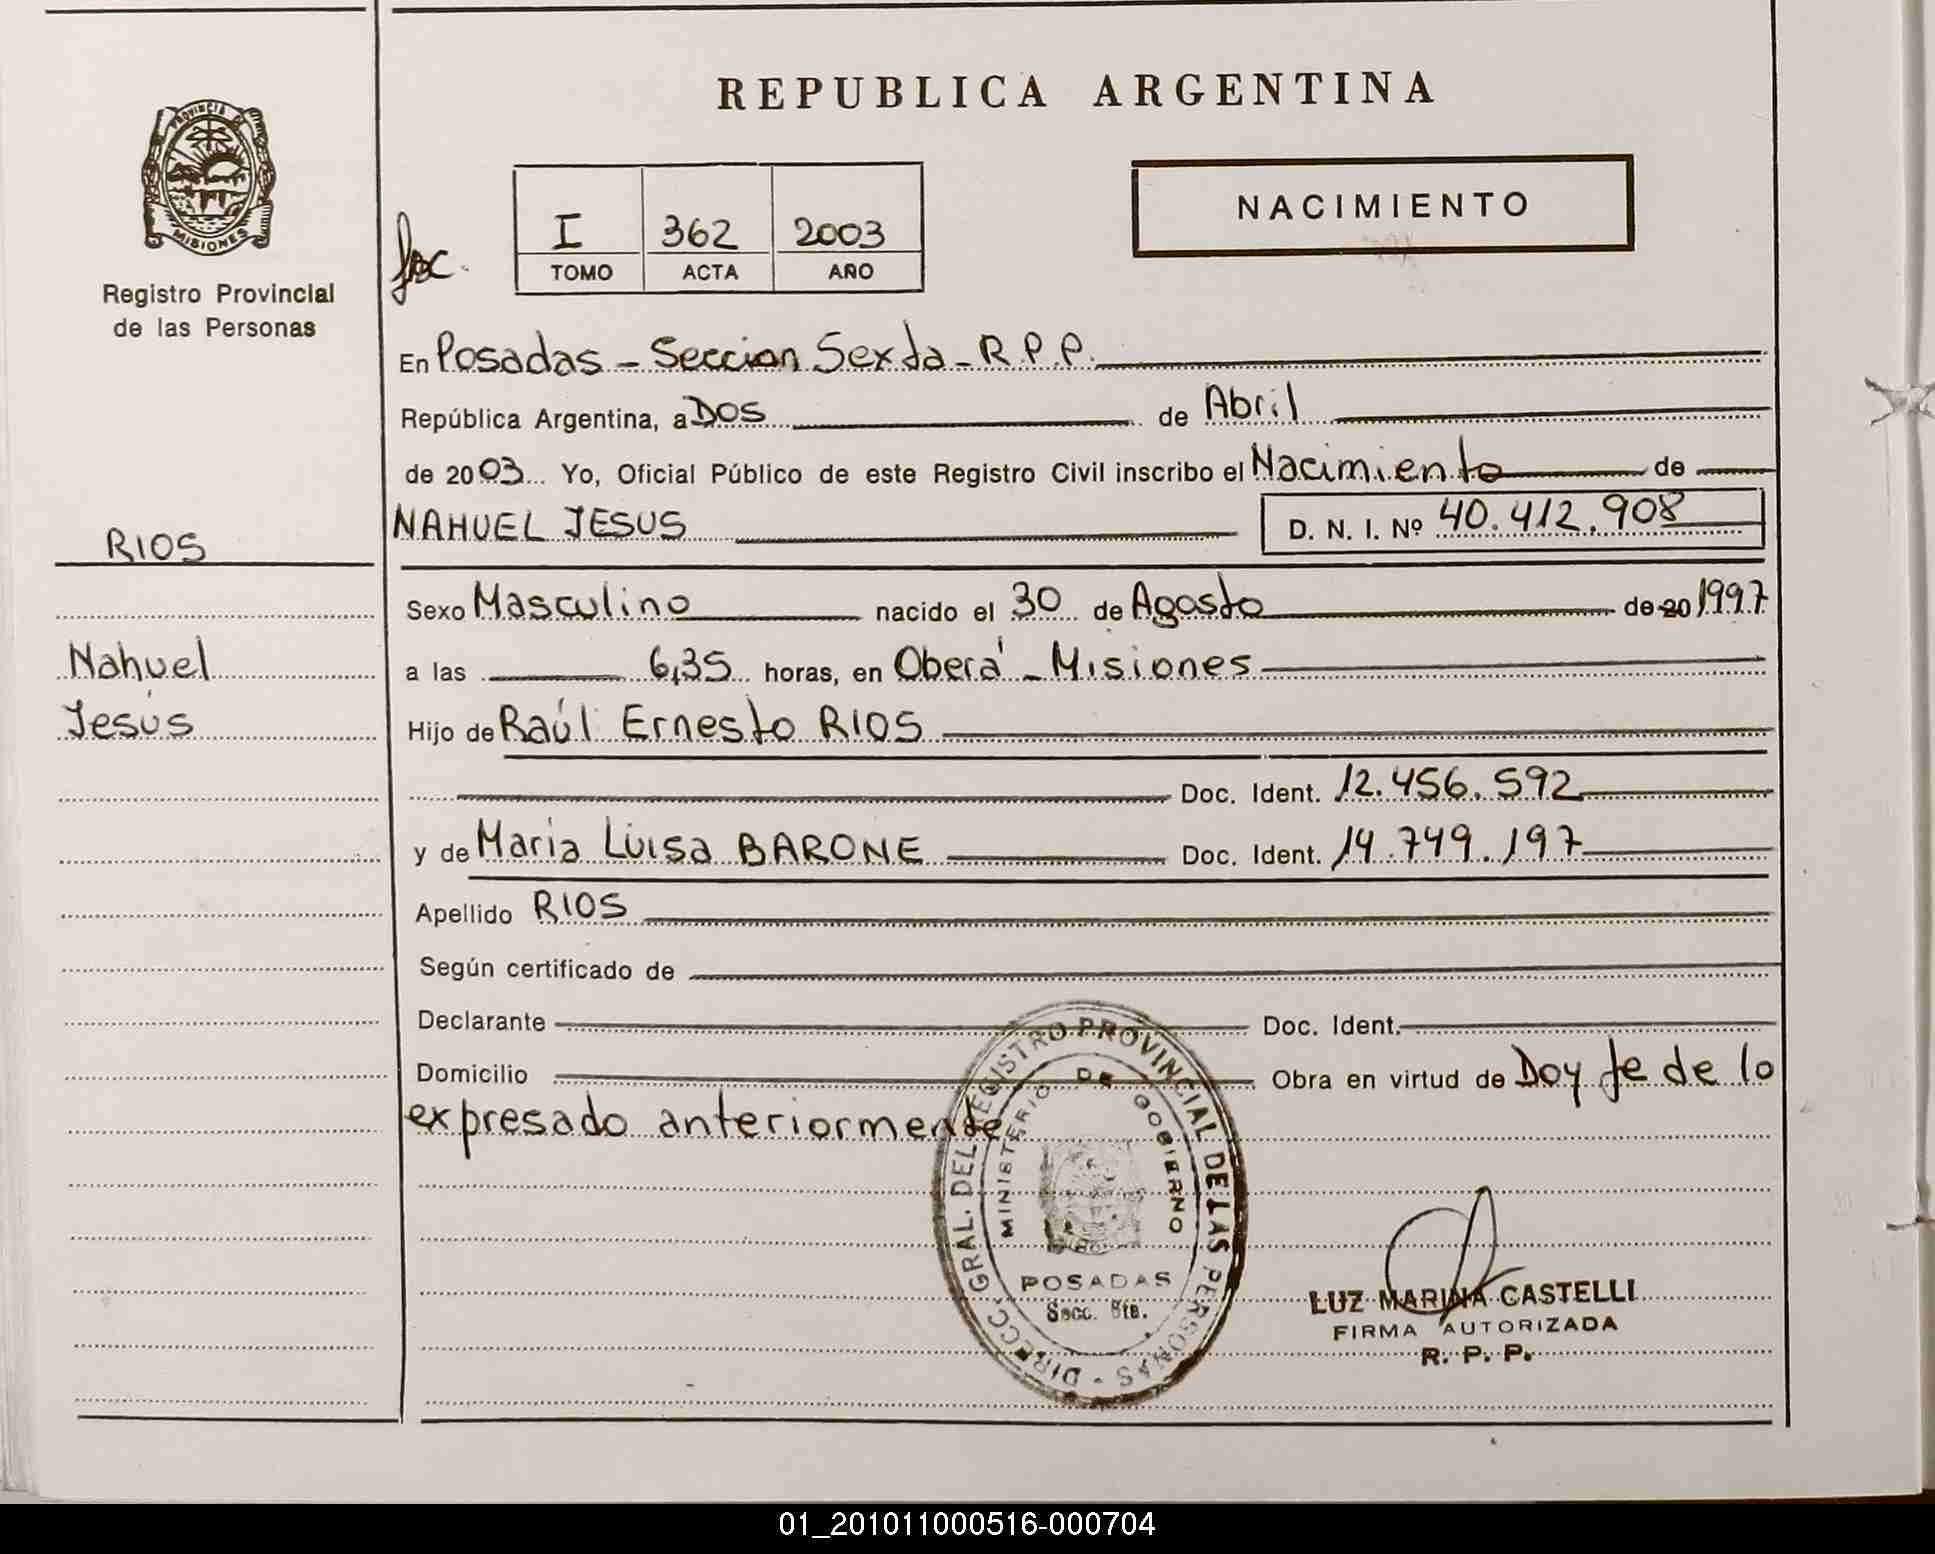 PROVINCIA DE
MISIONES
Registro Provincial
de las Personas
RIOS
Nahuel
Jesús
REPUBLICA ARGENTINA
NACIMIENTO
I 362 2003
TOMO ACTA AÑO
En Posadas - Seccion Sexta - R.P.P.
República Argentina, a DOS de Abril
de 2003 Yo, Oficial Público de este Registro Civil inscribo el Nacimiento de
NAHUEL JESUS D. N. I. Nº 40.412.908
Sexo Masculino nacido el 30 de Agosto de 20 1997
a las 6,35 horas, en Oberá - Misiones
Hijo de Raúl Ernesto RIOS
Doc. Ident. 12.456.592
y de Maria Luisa BARONE Doc. Ident. 14.749.197
Apellido RIOS
Según certificado de
Declarante Doc. Ident.
Domicilio Obra en virtud de Doy fe de lo
expresado anteriormente
DIRECC. GRAL. DEL REGISTRO PROVINCIAL DE LAS PERSONAS -
MINISTERIO DE GOBIERNO
POSADAS
Secc. 6ta.
LUZ MARINA CASTELLI
FIRMA AUTORIZADA
R. P. P.
01_201011000516-000704